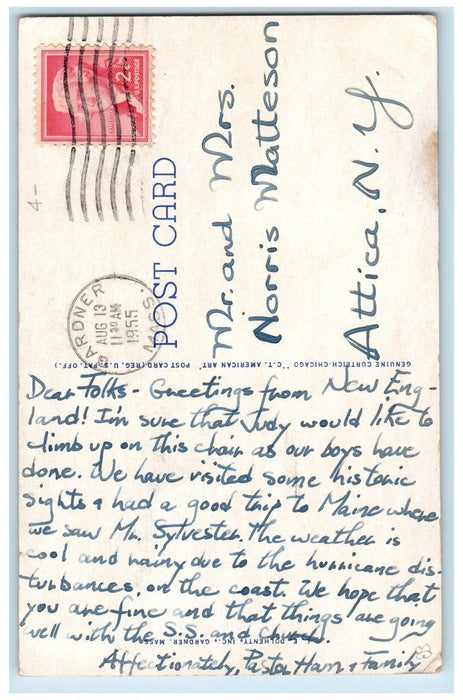 2¢
U.S. POSTAGE
4-
GARDNER
AUG 13
11 30 AM
1955
MASS.
POST CARD
Mr. and Mrs.
Norris Matteson
Attica, N.Y.
GENUINE CURTEICH-CHICAGO "C.T. AMERICAN ART" POST CARD (REG. U.S. PAT. OFF.)
Dear Folks - Greetings from New Eng-
land! I'm sure that Judy would like to
climb up on this chair as our boys have
done. We have visited some historic
sights & had a good trip to Maine where
we saw Mr. Sylvester. The weather is
cool and rainy due to the hurricane dis-
turbances on the coast. We hope that
you are fine and that things are going
well with the S.S. and church.
Affectionately, Pastor Ham & Family
DOLHENTY, INC., GARDNER, MASS.